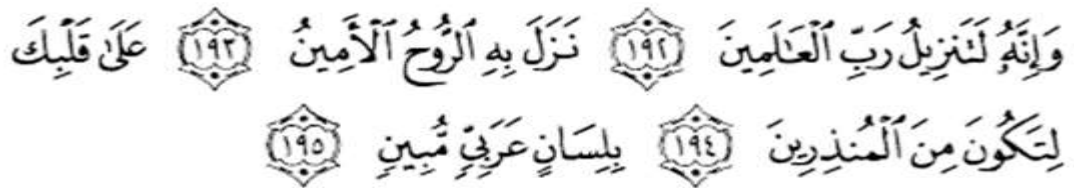 وَإِنَّهُۥ لَتَنزِيلُ رَبِّ ٱلْعَـٰلَمِينَ ١٩٢ نَزَلَ بِهِ ٱلرُّوحُ ٱلْأَمِينُ ١٩٣ عَلَىٰ قَلْبِكَ
لِتَكُونَ مِنَ ٱلْمُنذِرِينَ ١٩٤ بِلِسَانٍ عَرَبِىٍّ مُّبِينٍ ١٩٥